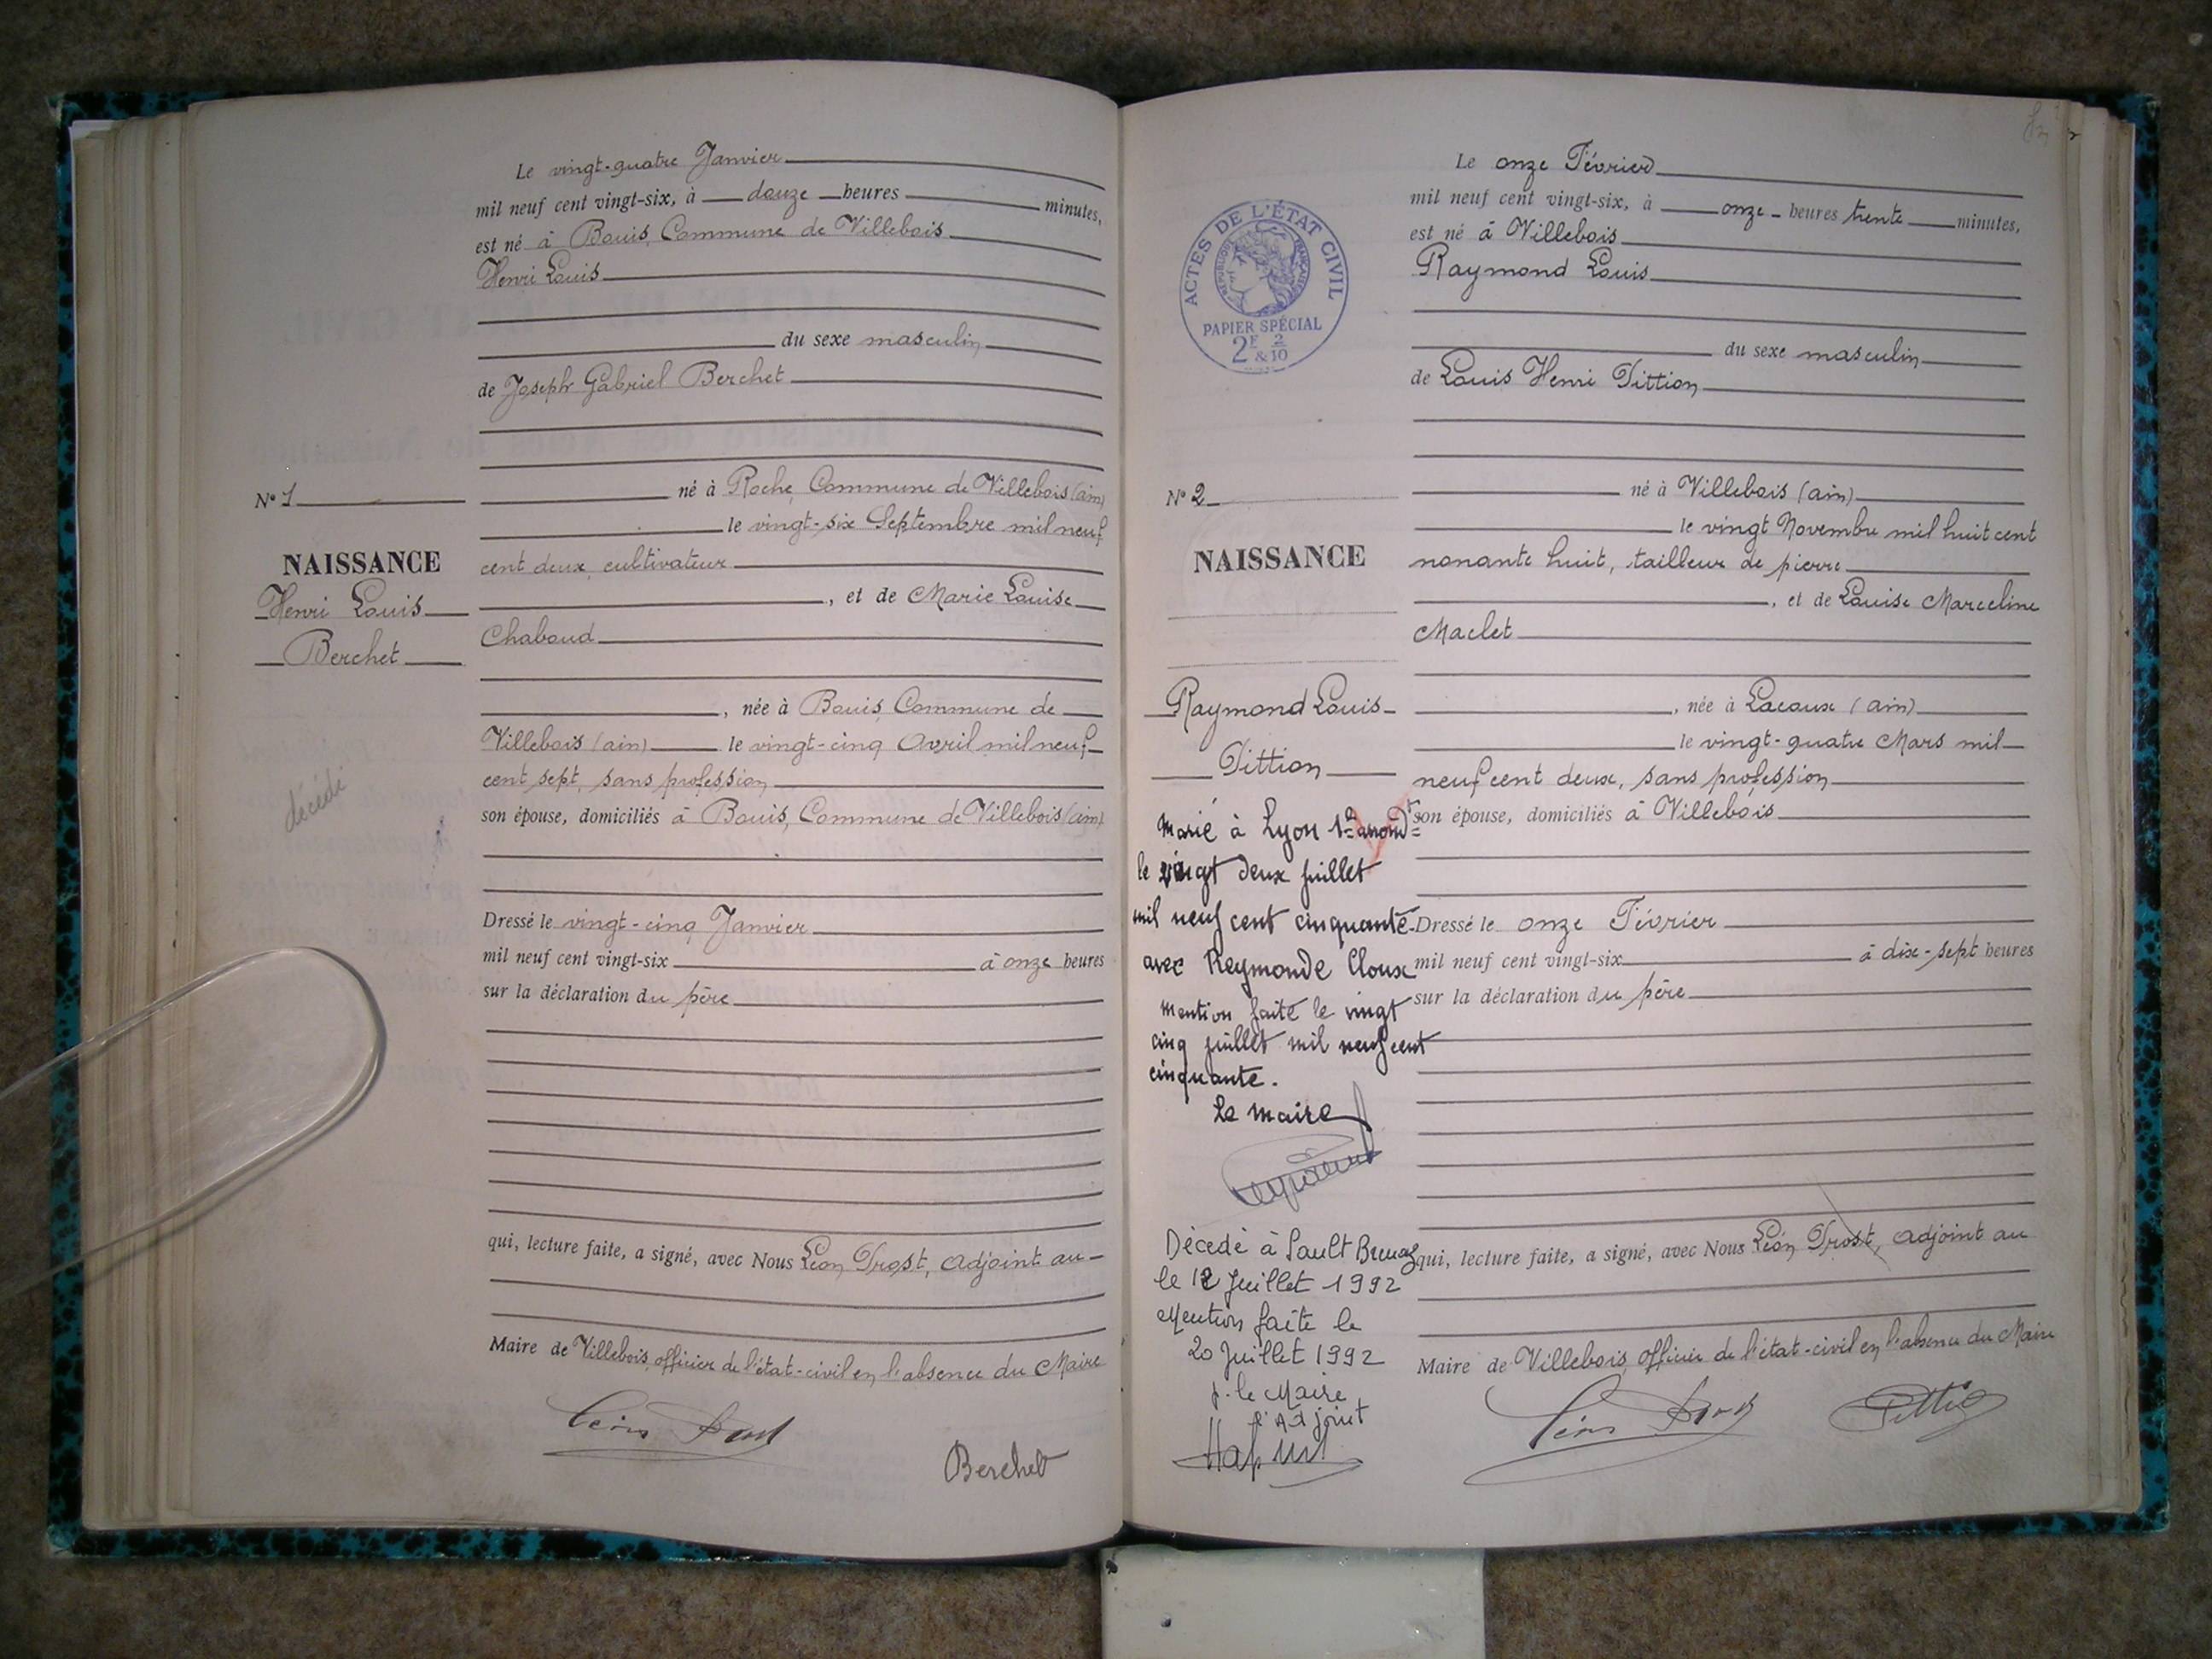 Le vingt-quatre Janvier
mil neuf cent vingt-six, à douze heures minutes,
est né à Bouis, Commune de Villebois
Henri Louis
du sexe masculin
de Joseph Gabriel Berchet
né à Roche, Commune de Villebois (ain)
N° 1
le vingt-six Septembre mil neuf
NAISSANCE
cent deux, cultivateur
Henri Louis
, et de Marie Louise
Chaboud
Berchet
, née à Bouis, Commune de
Villebois (ain) le vingt-cinq Avril mil neuf
cent sept, sans profession
décédé
son épouse, domiciliés à Bouis, Commune de Villebois (ain)
Dressé le vingt-cinq Janvier
mil neuf cent vingt-six à onze heures
sur la déclaration du père
qui, lecture faite, a signé, avec Nous Léon Trost, Adjoint au
Maire de Villebois, officier de l'état-civil en l'absence du Maire
Berchet
Le onze Février
mil neuf cent vingt-six, à onze heures trente minutes,
est né à Villebois
Raymond Louis
ACTES DE L'ÉTAT CIVIL
RÉPUBLIQUE FRANÇAISE
PAPIER SPÉCIAL
2F 2
& 10
du sexe masculin
de Louis Henri Tittion
né à Villebois (ain)
N° 2
le vingt Novembre mil huit cent
NAISSANCE
nonante huit, tailleur de pierre
, et de Louise Marceline
Maclet
Raymond Louis
, née à Lacoux (ain)
le vingt-quatre Mars mil
Tittion
neuf cent deux, sans profession
son épouse, domiciliés à Villebois
Marié à Lyon 1er arrondt
le vingt deux juillet
mil neuf cent cinquante
avec Reymonde Cloux
mention faite le vingt
cinq juillet mil neuf cent
cinquante.
Le maire
Dressé le onze Février
mil neuf cent vingt-six à dix-sept heures
sur la déclaration du père
Décédé à Sault Brenaz
le 12 Juillet 1992
Mention faite le
20 Juillet 1992
p. le Maire
l'Adjoint
qui, lecture faite, a signé, avec Nous Léon Trost, Adjoint au
Maire de Villebois, officier de l'état-civil en l'absence du Maire